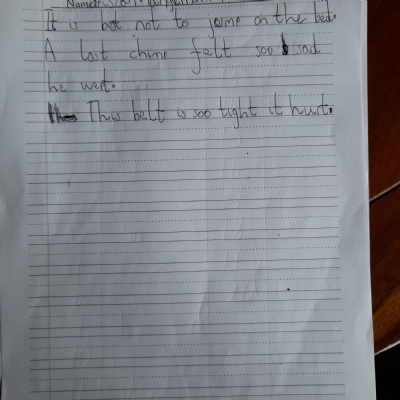 Name:
It is bet not to jome on the bed.
A lost chime felt soo sad
he went.
This belt is soo tight it hurt.